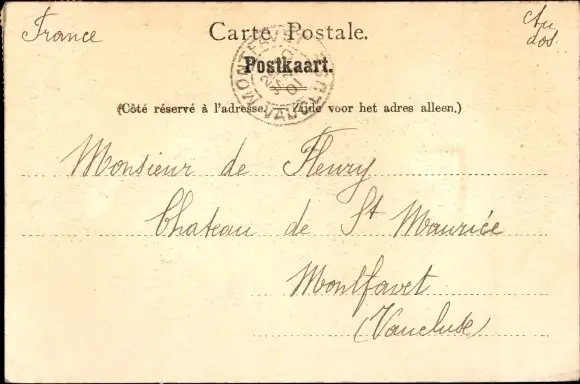 France
Au
dos.
Carte Postale.
MONTFAVET
VAUCLUSE
01
Postkaart.
(Côté réservé à l'adresse. — Zijde voor het adres alleen.)
Monsieur de Fleury
Chateau de St Maurice
Montfavet
(Vaucluse)